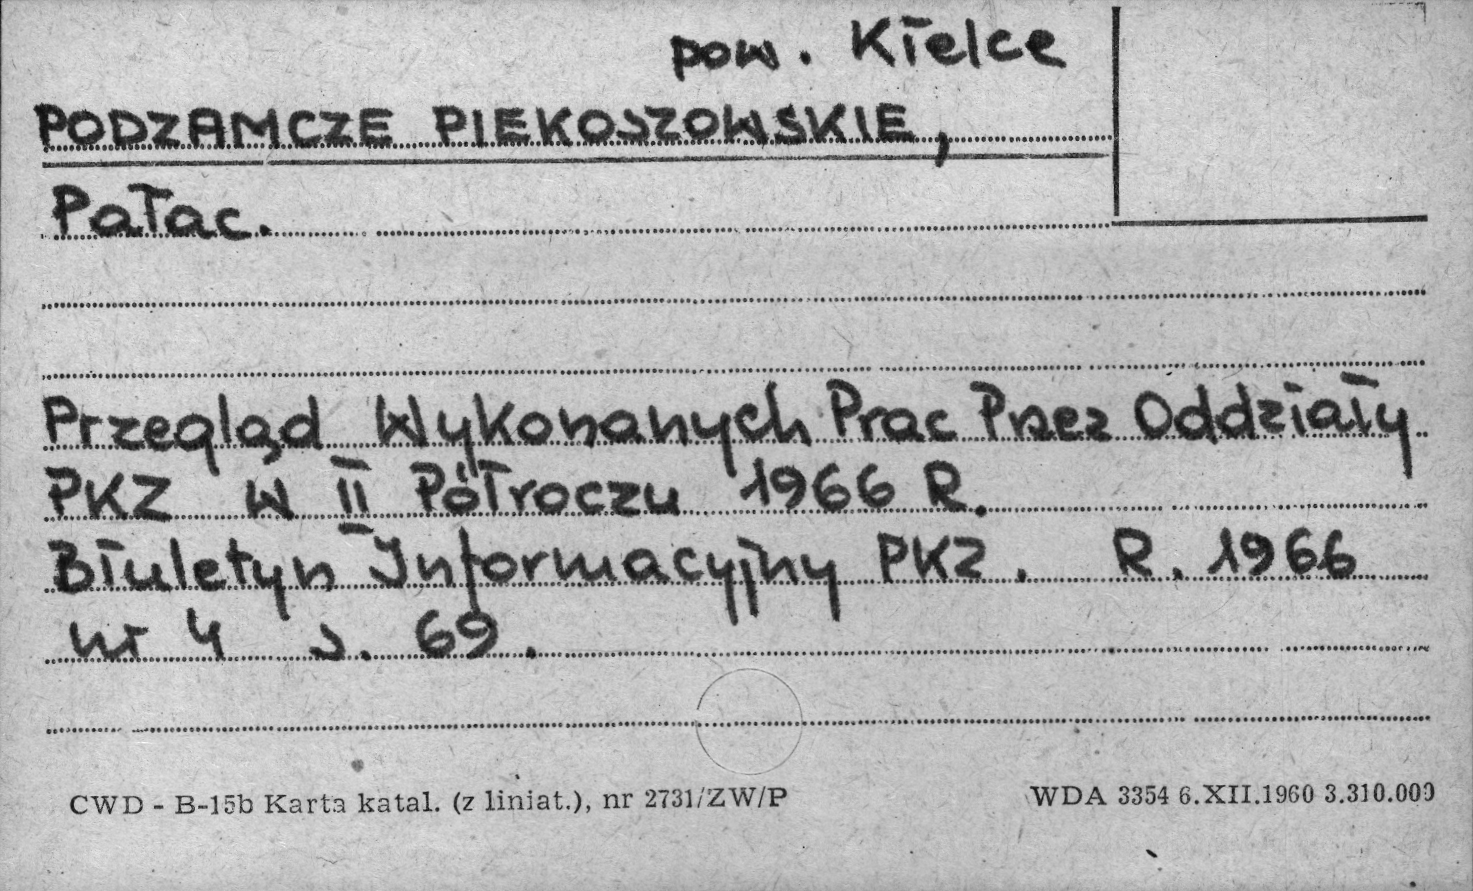 pow. Kielce
PODZAMCZE PIEKOSZOWSKIE,
Pałac.
Przegląd Wykonanych Prac Przez Oddziały
PKZ w II Półroczu 1966 R.
Biuletyn Informacyjny PKZ. R. 1966
nr 4 s. 69.
CWD - B-15b Karta katal. (z liniat.), nr 2731/ZW/P
WDA 3354 6.XII.1960 3.310.000